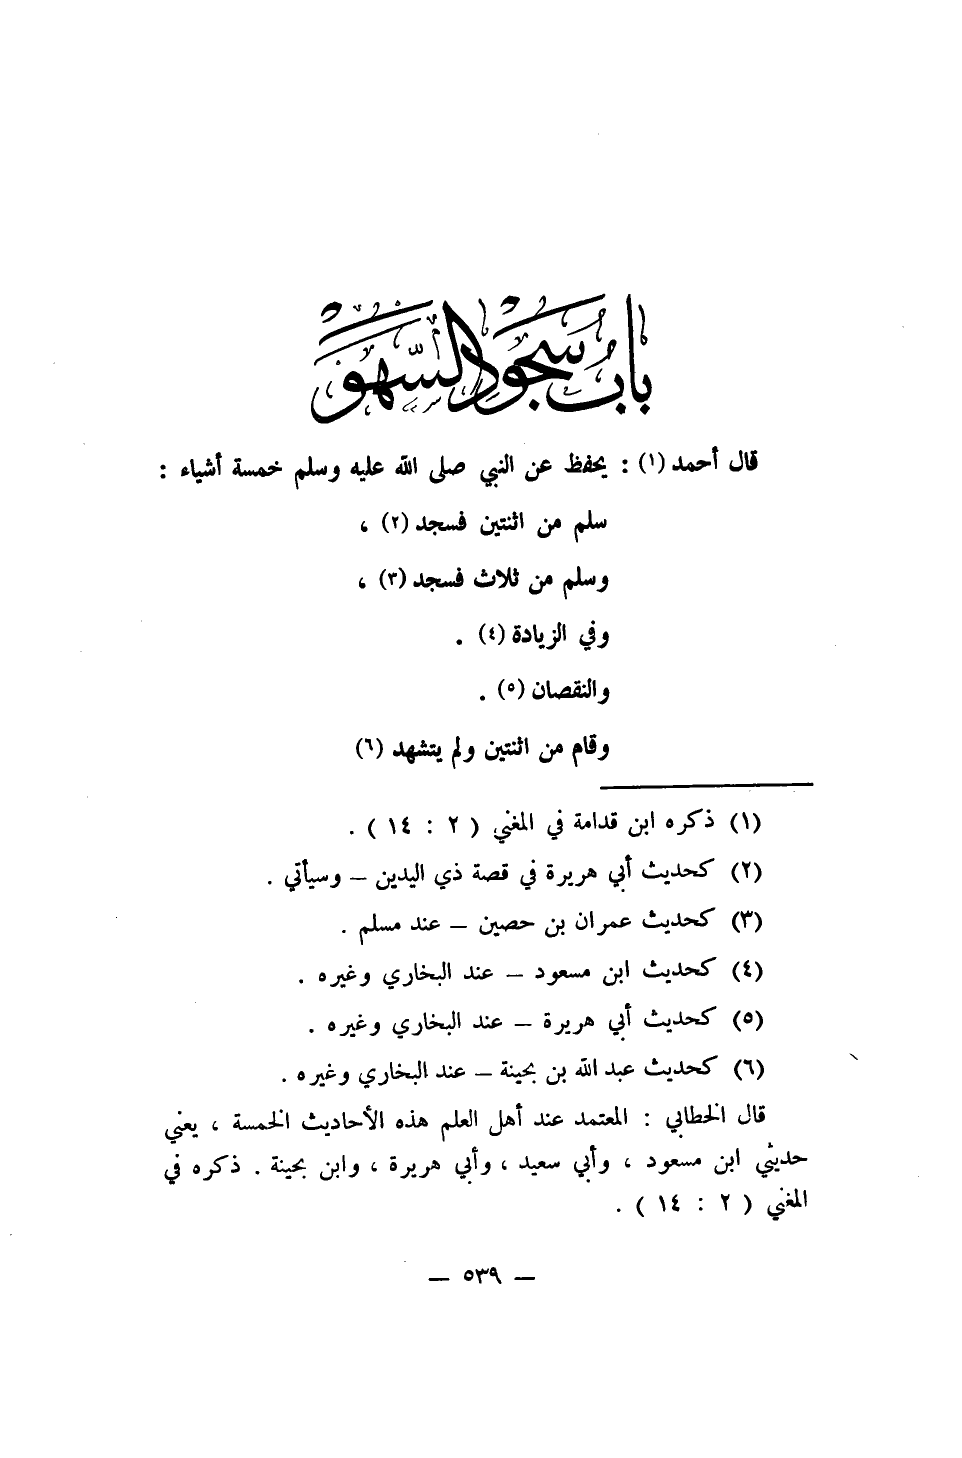 باب سجود السهو
قال أحمد (١) : يحفظ عن النبي صلى الله عليه وسلم خمسة أشياء :
سلم من اثنتين فسجد (٢) ،
وسلم من ثلاث فسجد (٣) ،
وفي الزيادة (٤) .
والنقصان (٥) .
وقام من اثنتين ولم يتشهد (٦)
(١) ذكره ابن قدامة في المغني ( ٢ : ١٤ ) .
(٢) كحديث أبي هريرة في قصة ذي اليدين – وسيأتي .
(٣) كحديث عمران بن حصين – عند مسلم .
(٤) كحديث ابن مسعود – عند البخاري وغيره .
(٥) كحديث أبي هريرة – عند البخاري وغيره .
(٦) كحديث عبد الله بن بحينة – عند البخاري وغيره .
قال الخطابي : المعتمد عند أهل العلم هذه الأحاديث الخمسة ، يعني
حديثي ابن مسعود ، وأبي سعيد ، وأبي هريرة ، وابن بحينة . ذكره في
المغني ( ٢ : ١٤ ) .
– ٥٣٩ –